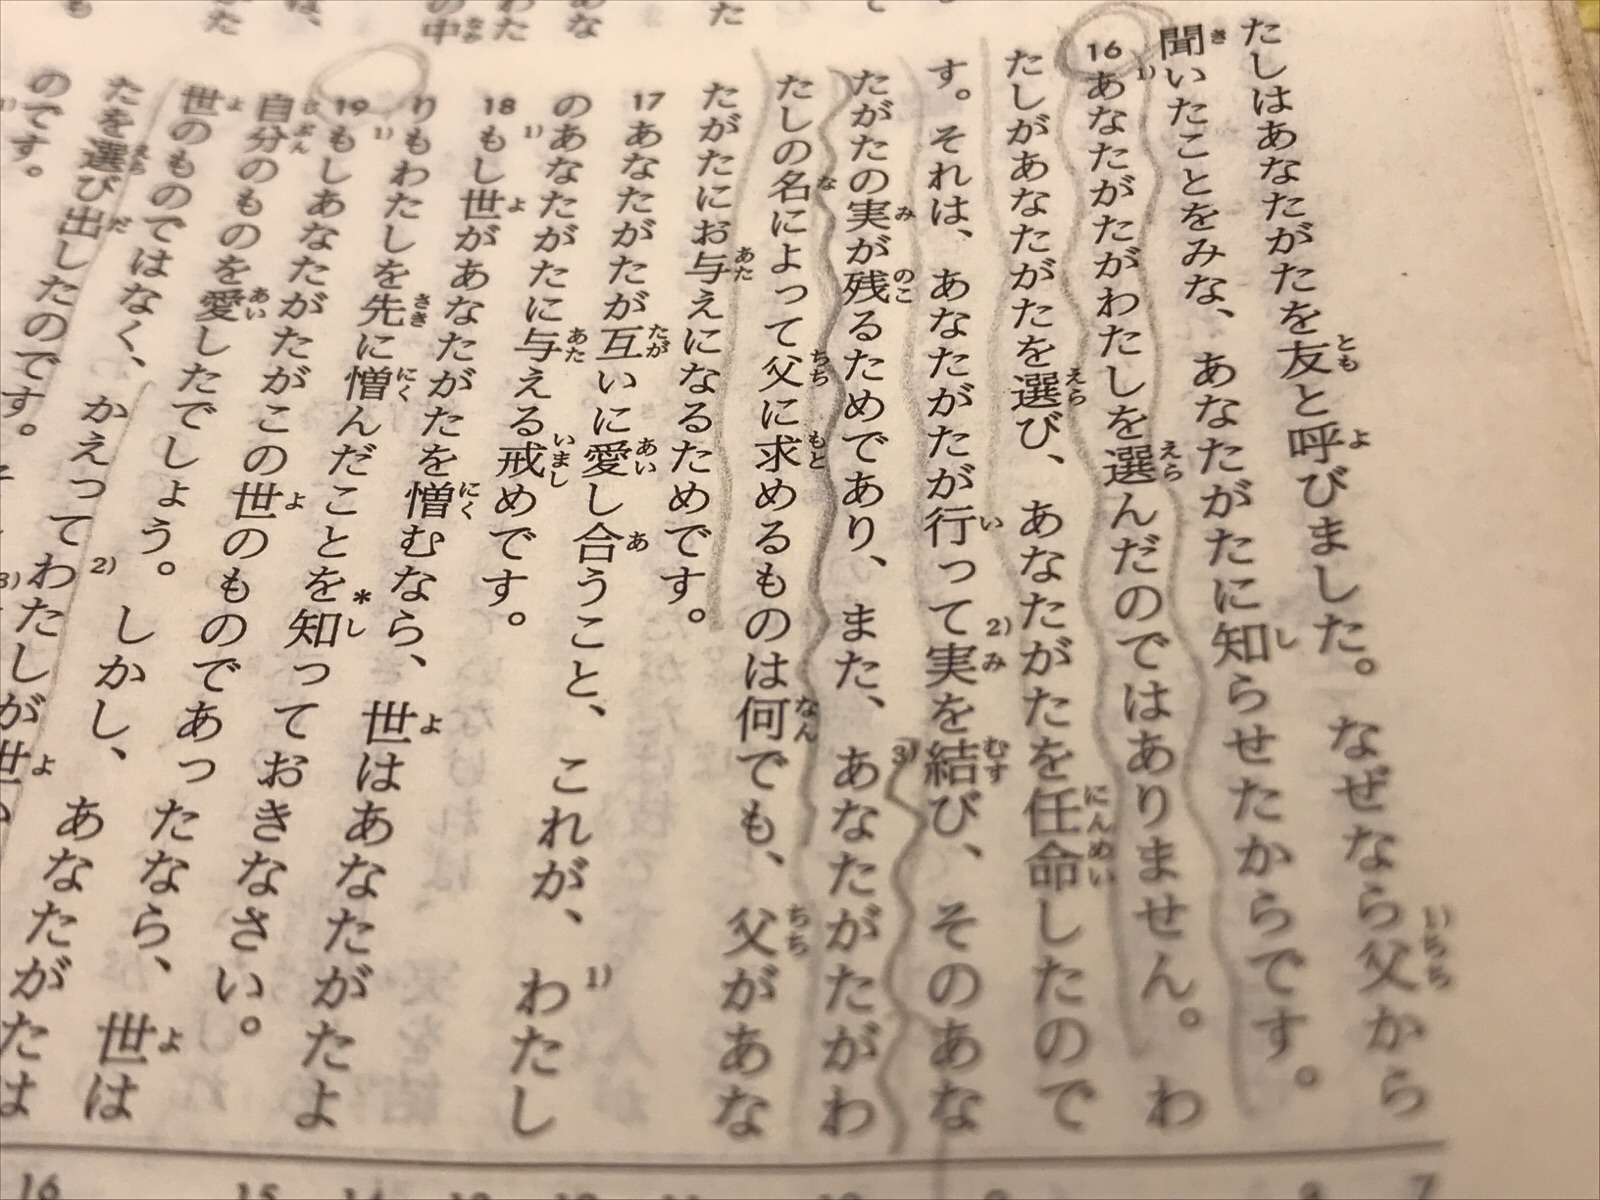 たしはあなたがたを友と呼びました。なぜなら父から
聞いたことをみな、あなたがたに知らせたからです。
16 あなたがたがわたしを選んだのではありません。わ
たしがあなたがたを選び、あなたがたを任命したので
す。それは、あなたがたが行って実を結び、そのあな
たがたの実が残るためであり、また、あなたがたがわ
たしの名によって父に求めるものは何でも、父があな
たがたにお与えになるためです。
17 あなたがたが互いに愛し合うこと、これが、わたし
のあなたがたに与える戒めです。
18 もし世があなたがたを憎むなら、世はあなたがたよ
りもわたしを先に憎んだことを知っておきなさい。
19 もしあなたがたがこの世のものであったなら、世は
自分のものを愛したでしょう。しかし、あなたがたは
世のものではなく、かえってわたしが世
たを選び出したのです。
のです。
16 15
7